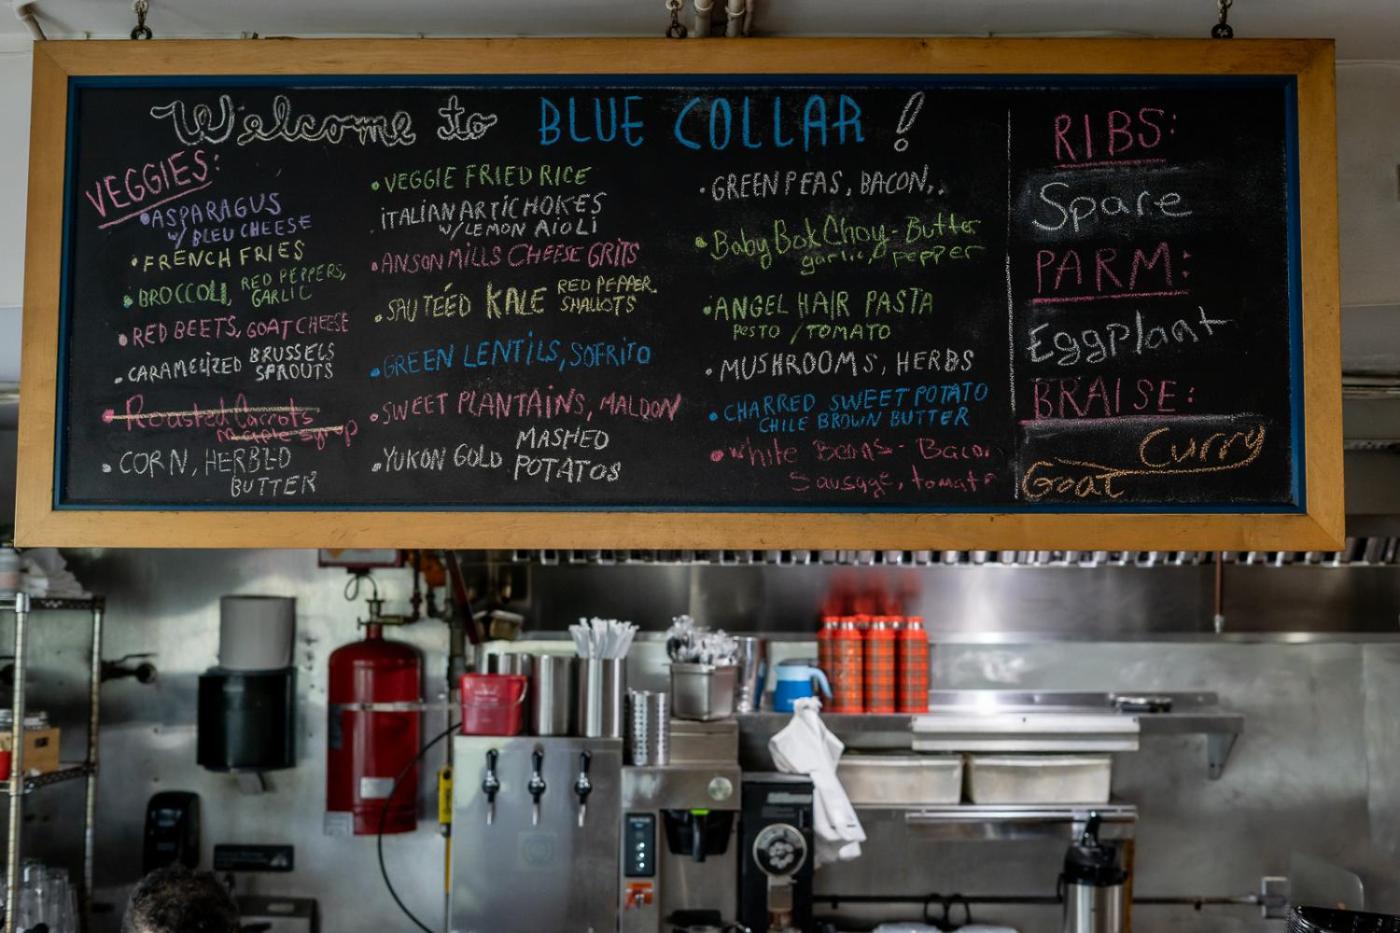 Welcome to BLUE COLLAR!
VEGGIES:
•ASPARAGUS
w/ BLEU CHEESE
•FRENCH FRIES
•BROCCOLI, RED PEPPERS,
GARLIC
•RED BEETS, GOAT CHEESE
•CARAMELIZED BRUSSELS
SPROUTS
•Roasted Carrots
Maple Syrup
•CORN, HERBED
BUTTER
•VEGGIE FRIED RICE
•ITALIAN ARTICHOKES
w/LEMON AIOLI
•ANSON MILLS CHEESE GRITS
•SAUTÉED KALE RED PEPPER
SHALLOTS
•GREEN LENTILS, SOFRITO
•SWEET PLANTAINS, MALDON
•YUKON GOLD MASHED
POTATOS
•GREEN PEAS, BACON
•Baby Bok Choy - Butter
garlic, pepper
•ANGEL HAIR PASTA
PESTO / TOMATO
•MUSHROOMS, HERBS
•CHARRED SWEET POTATO
CHILE BROWN BUTTER
•White Beans - Bacon
Sausage, tomato
RIBS:
Spare
PARM:
Eggplant
BRAISE:
Curry
Goat